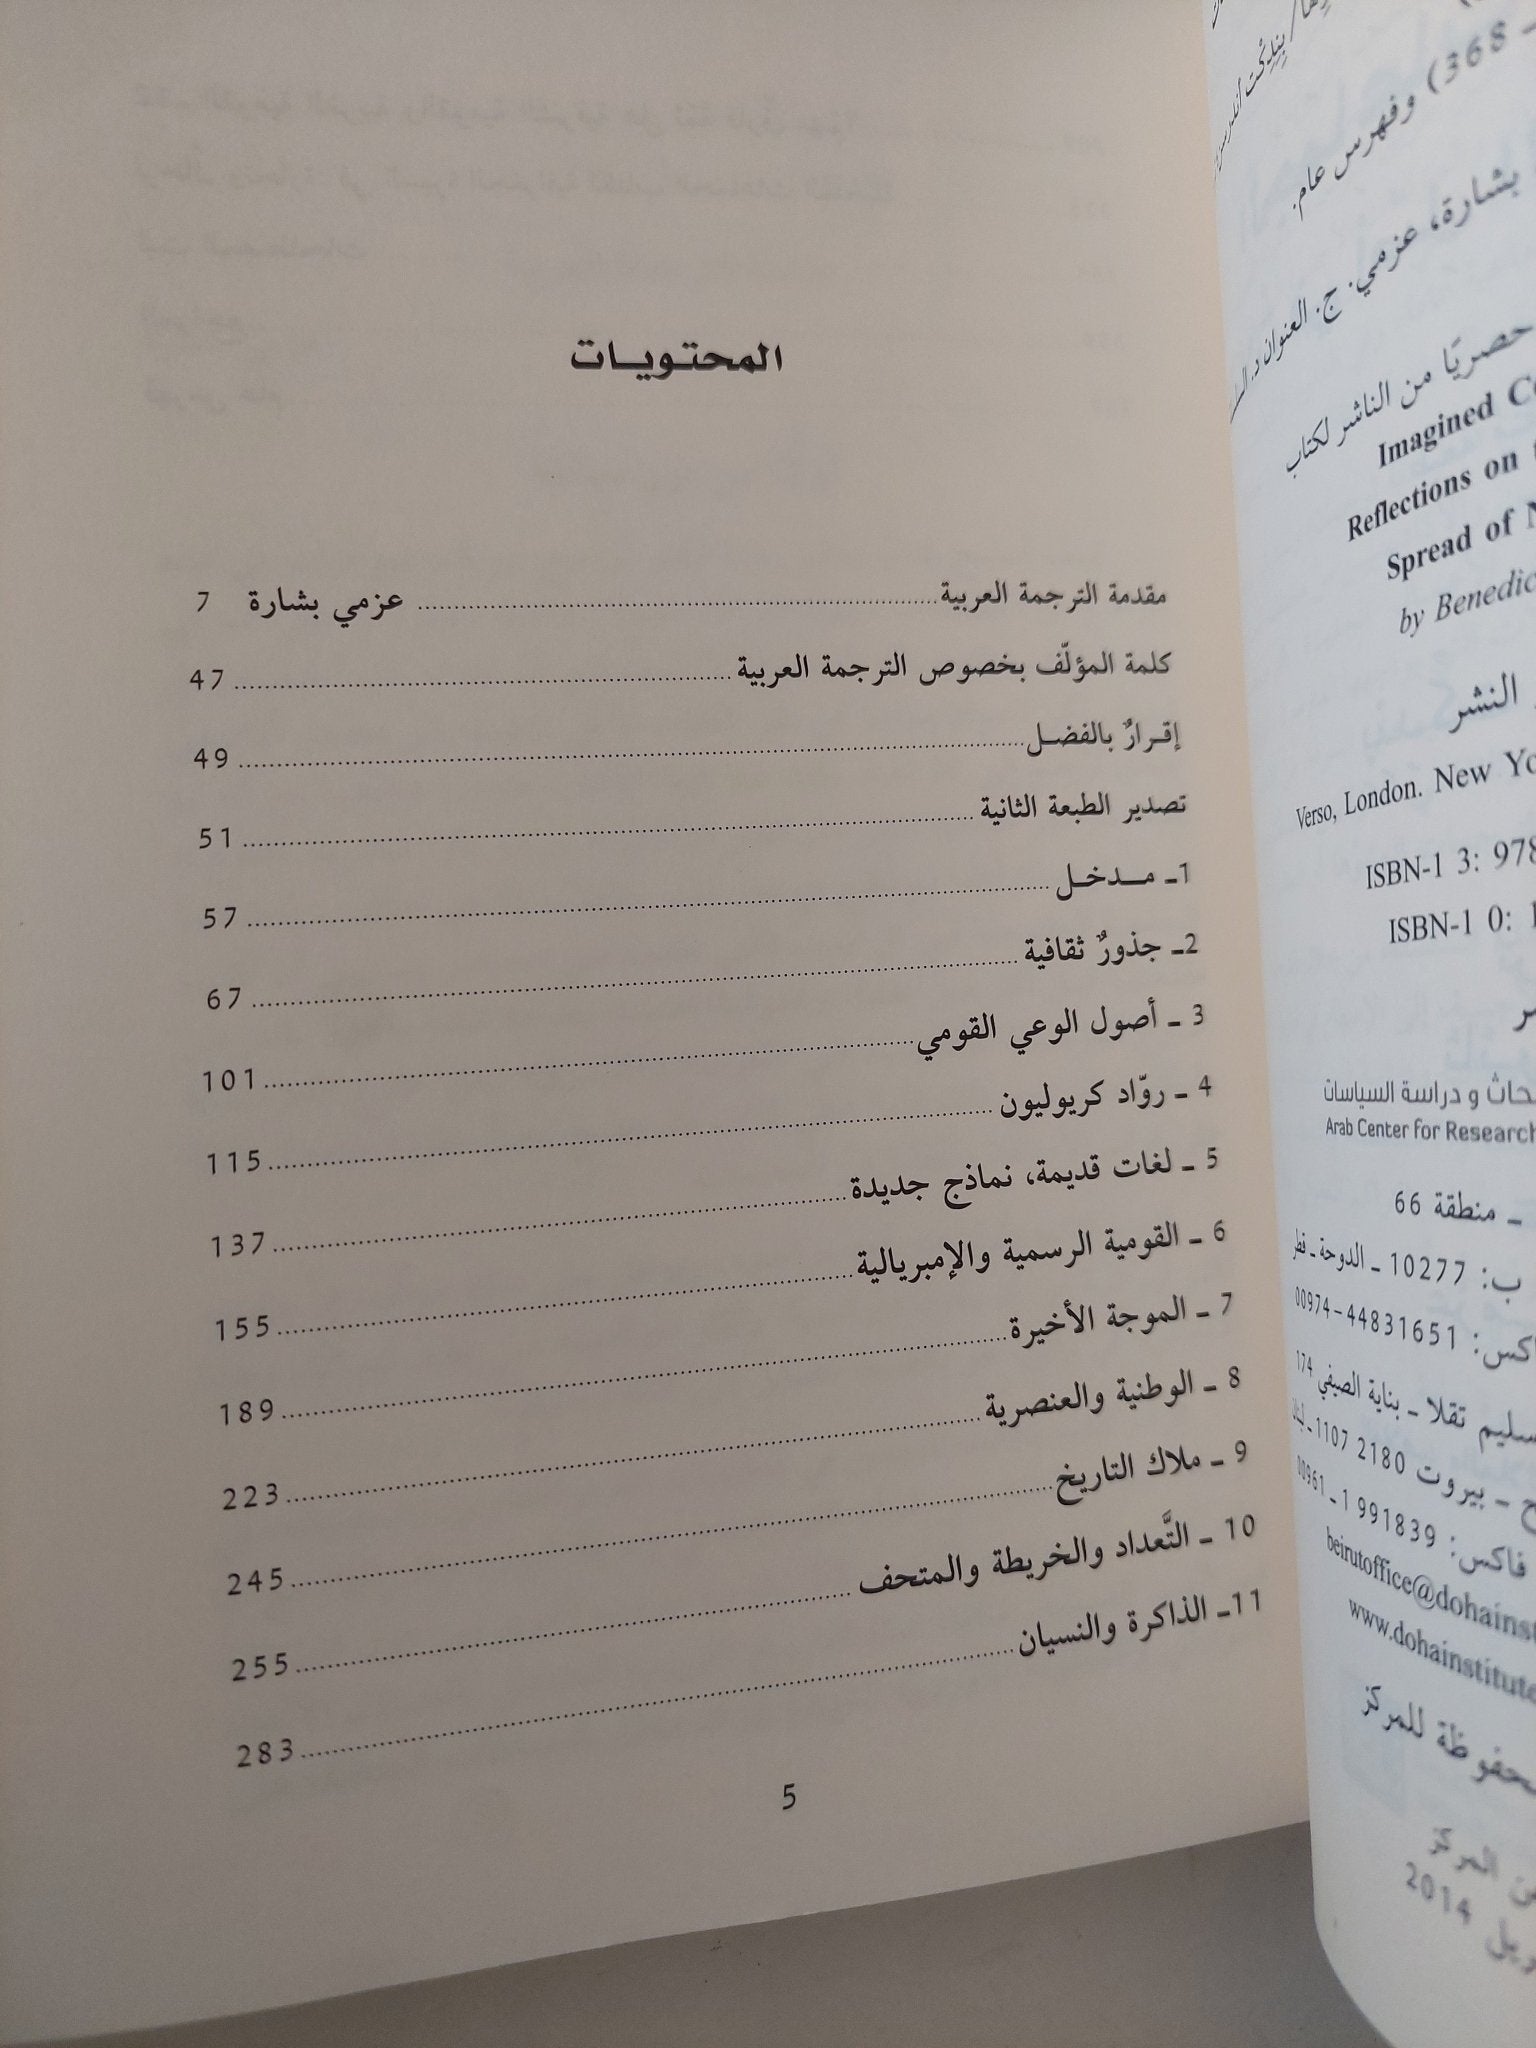 المحتويات
مقدمة الترجمة العربية ........ عزمي بشارة 7
كلمة المؤلّف بخصوص الترجمة العربية ........ 47
إقرارٌ بالفضل ........ 49
تصدير الطبعة الثانية ........ 51
1ـ مدخل ........ 57
2ـ جذورٌ ثقافية ........ 67
3 ـ أصول الوعي القومي ........ 101
4 ـ روّاد كريوليون ........ 115
5 ـ لغات قديمة، نماذج جديدة ........ 137
6 ـ القومية الرسمية والإمبريالية ........ 155
7 ـ الموجة الأخيرة ........ 189
8 ـ الوطنية والعنصرية ........ 223
9 ـ ملاك التاريخ ........ 245
10 ـ التَّعداد والخريطة والمتحف ........ 255
11ـ الذاكرة والنسيان ........ 283
5
368) وفهرس عام.
بشارة، عزمي. ج. العنوان
حصريًا من الناشر لكتاب
Imagined
Reflections on
Spread of
by
النشر
Verso, London. New
ISBN-1 3: 978
ISBN-1 0: 1
ودراسة السياسات
Arab Center for Research
ـ منطقة 66
ب: 10277 ـ الدوحة ـ قطر
00974-44831651
سليم تقلا ـ بناية الصيفي 174
ـ بيروت 2180 1107 ـ
فاكس: 991839 1 ـ 00961
beirutoffice@dohainst
www.dohainstitute
للمركز
المركز
2014